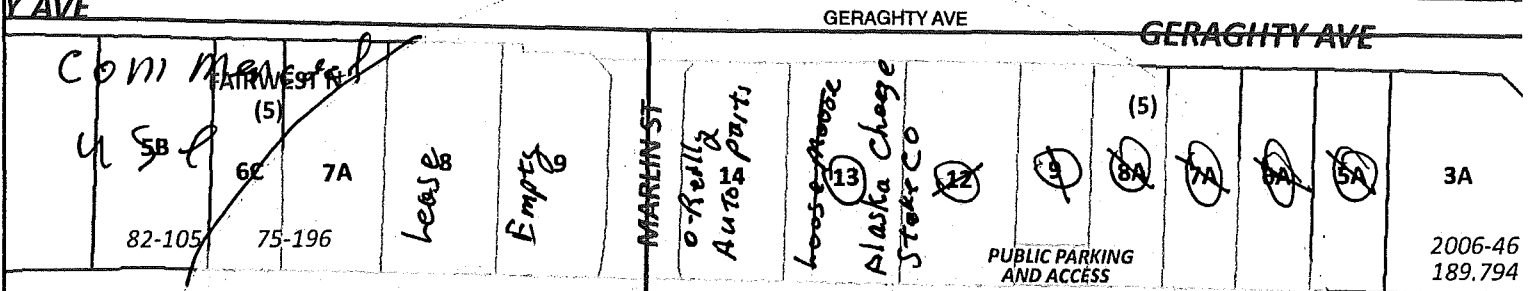 Y AVE
GERAGHTY AVE
GERAGHTY AVE
Commercal
FAIRWEST N
(5)
use
5B
6C
7A
82-105
75-196
Lease
8
Empty
9
MARLIN ST
O-Reilly
Auto parts
14
Loose Moose
13
Alaska Chaege
Stake CO
12
9
(5)
8A
7A
6A
5A
3A
PUBLIC PARKING
AND ACCESS
2006-46
189.794